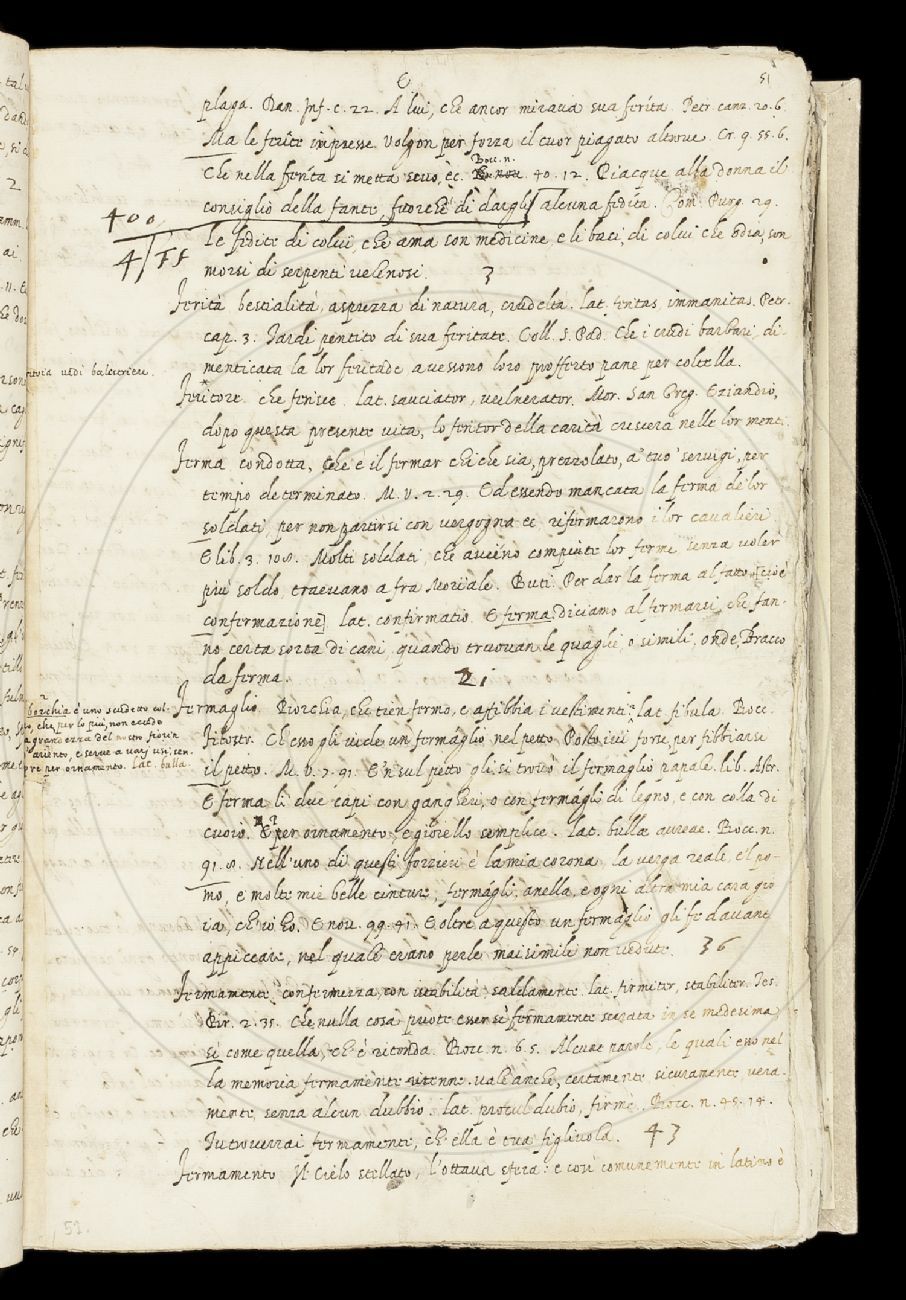 51
plaga. Dan. Inf. c. 22. A lui, che ancor miraua sua ferita. Petr. canz. 20. 6.
Ma le ferite impresse Volgon per forza il cuor piagato altroue. Cr. 9. 55. 6.
Che nella ferita si metta seuo, ec. Bocc. n. 40. 12. Piacque alla donna il
consiglio della fante, fuorchè di dargli alcuna fedita. Com. Purg. 29.
400
4 / FF
Le fedite di colui, che ama son medicine, e li baci, di colui che odia, son
morsi di serpenti velenosi. 3
Ferità bestialità, asprezza di natura, crudeltà. lat. feritas, immanitas. Petr.
cap. 3. Tardi pentito di sua feritate. Coll. S. Pad. Che i crudi barbari, di-
menticata la lor feritade auessono loro profferto pane per coltella.
uedi balestriere.
Feritore. che ferisce. lat. sauciator, vulnerator. Mor. San Greg. Eziandio,
dopo questa presente vita, lo feritor della carità crescerà nelle lor menti.
Ferma. condotta, che è il fermar chi che sia, prezzolato, a' tuo' seruigi, per
tempo determinato. M. V. 2. 29. Ed essendo mancata la ferma de' lor
soldati, per non partirsi con vergogna ec. rifermarono i lor caualieri
E lib. 3. 108. Molti soldati, che aueino compiute lor ferme senza voler
più soldo, traeuano a fra Moriale. Buti. Per dar la ferma al fatto [cioè
confermazione] lat. confirmatio. E ferma diciamo al fermarsi, che fan-
no certa sorta di cani, quando truouan le quaglie, o simili, onde, Bracco
da ferma. 21
Fermaglio. Borchia, che tien fermo, e affibbia i vestimenti. lat. fibula. Bocc.
borchia è uno scudetto col-
mo, che per lo più, non eccede
la grandezza del nostro fiorin
d'ariento, e serue a varj usi, sem-
pre per ornamento. lat. bulla.
Filostr. Ch'esso gli uide un fermaglio nel petto Posto iui forse, per fibbiarsi
il petto. M. V. 7. 91. E'n sul petto gli si trouò il fermaglio papale. lib. Astr.
E ferma li due capi con gangheri, o con fermagli di legno, e con colla di
cuoio. E per ornamento, e gioiello semplice. lat. bullae aureae. Bocc. n.
91. 8. Nell'uno di questi forzieri è la mia corona, la verga reale, e'l po-
mo, e molte mie belle cinture, fermagli, anella, e ogni altra mia cara gio
ia, ch'io ho. E nou. 99. 41. E oltre a questo un fermaglio gli fe' dauanti
appiccare, nel quale erano perle mai simili non vedute. 36
Fermamente, con fermezza, con istabilità, saldamente. lat. firmiter, stabiliter. Tes.
Br. 2. 35. Che nulla cosa puote esser sì fermamente serrata in se medesima,
sì come quella, ch'è ritonda. Bocc. n. 65. Alcune parole, le quali esso nel
la memoria fermamente ritenne. vale anche, certamente sicuramente, vera-
mente, senza alcun dubbio. lat. procul dubio, firmè. Bocc. n. 45. 14.
Tu trouerrai fermamente, ch'ella è tua figliuola. 43
Fermamento. Il Cielo stellato, l'ottaua sfera: e così comunemente in latino è
52.